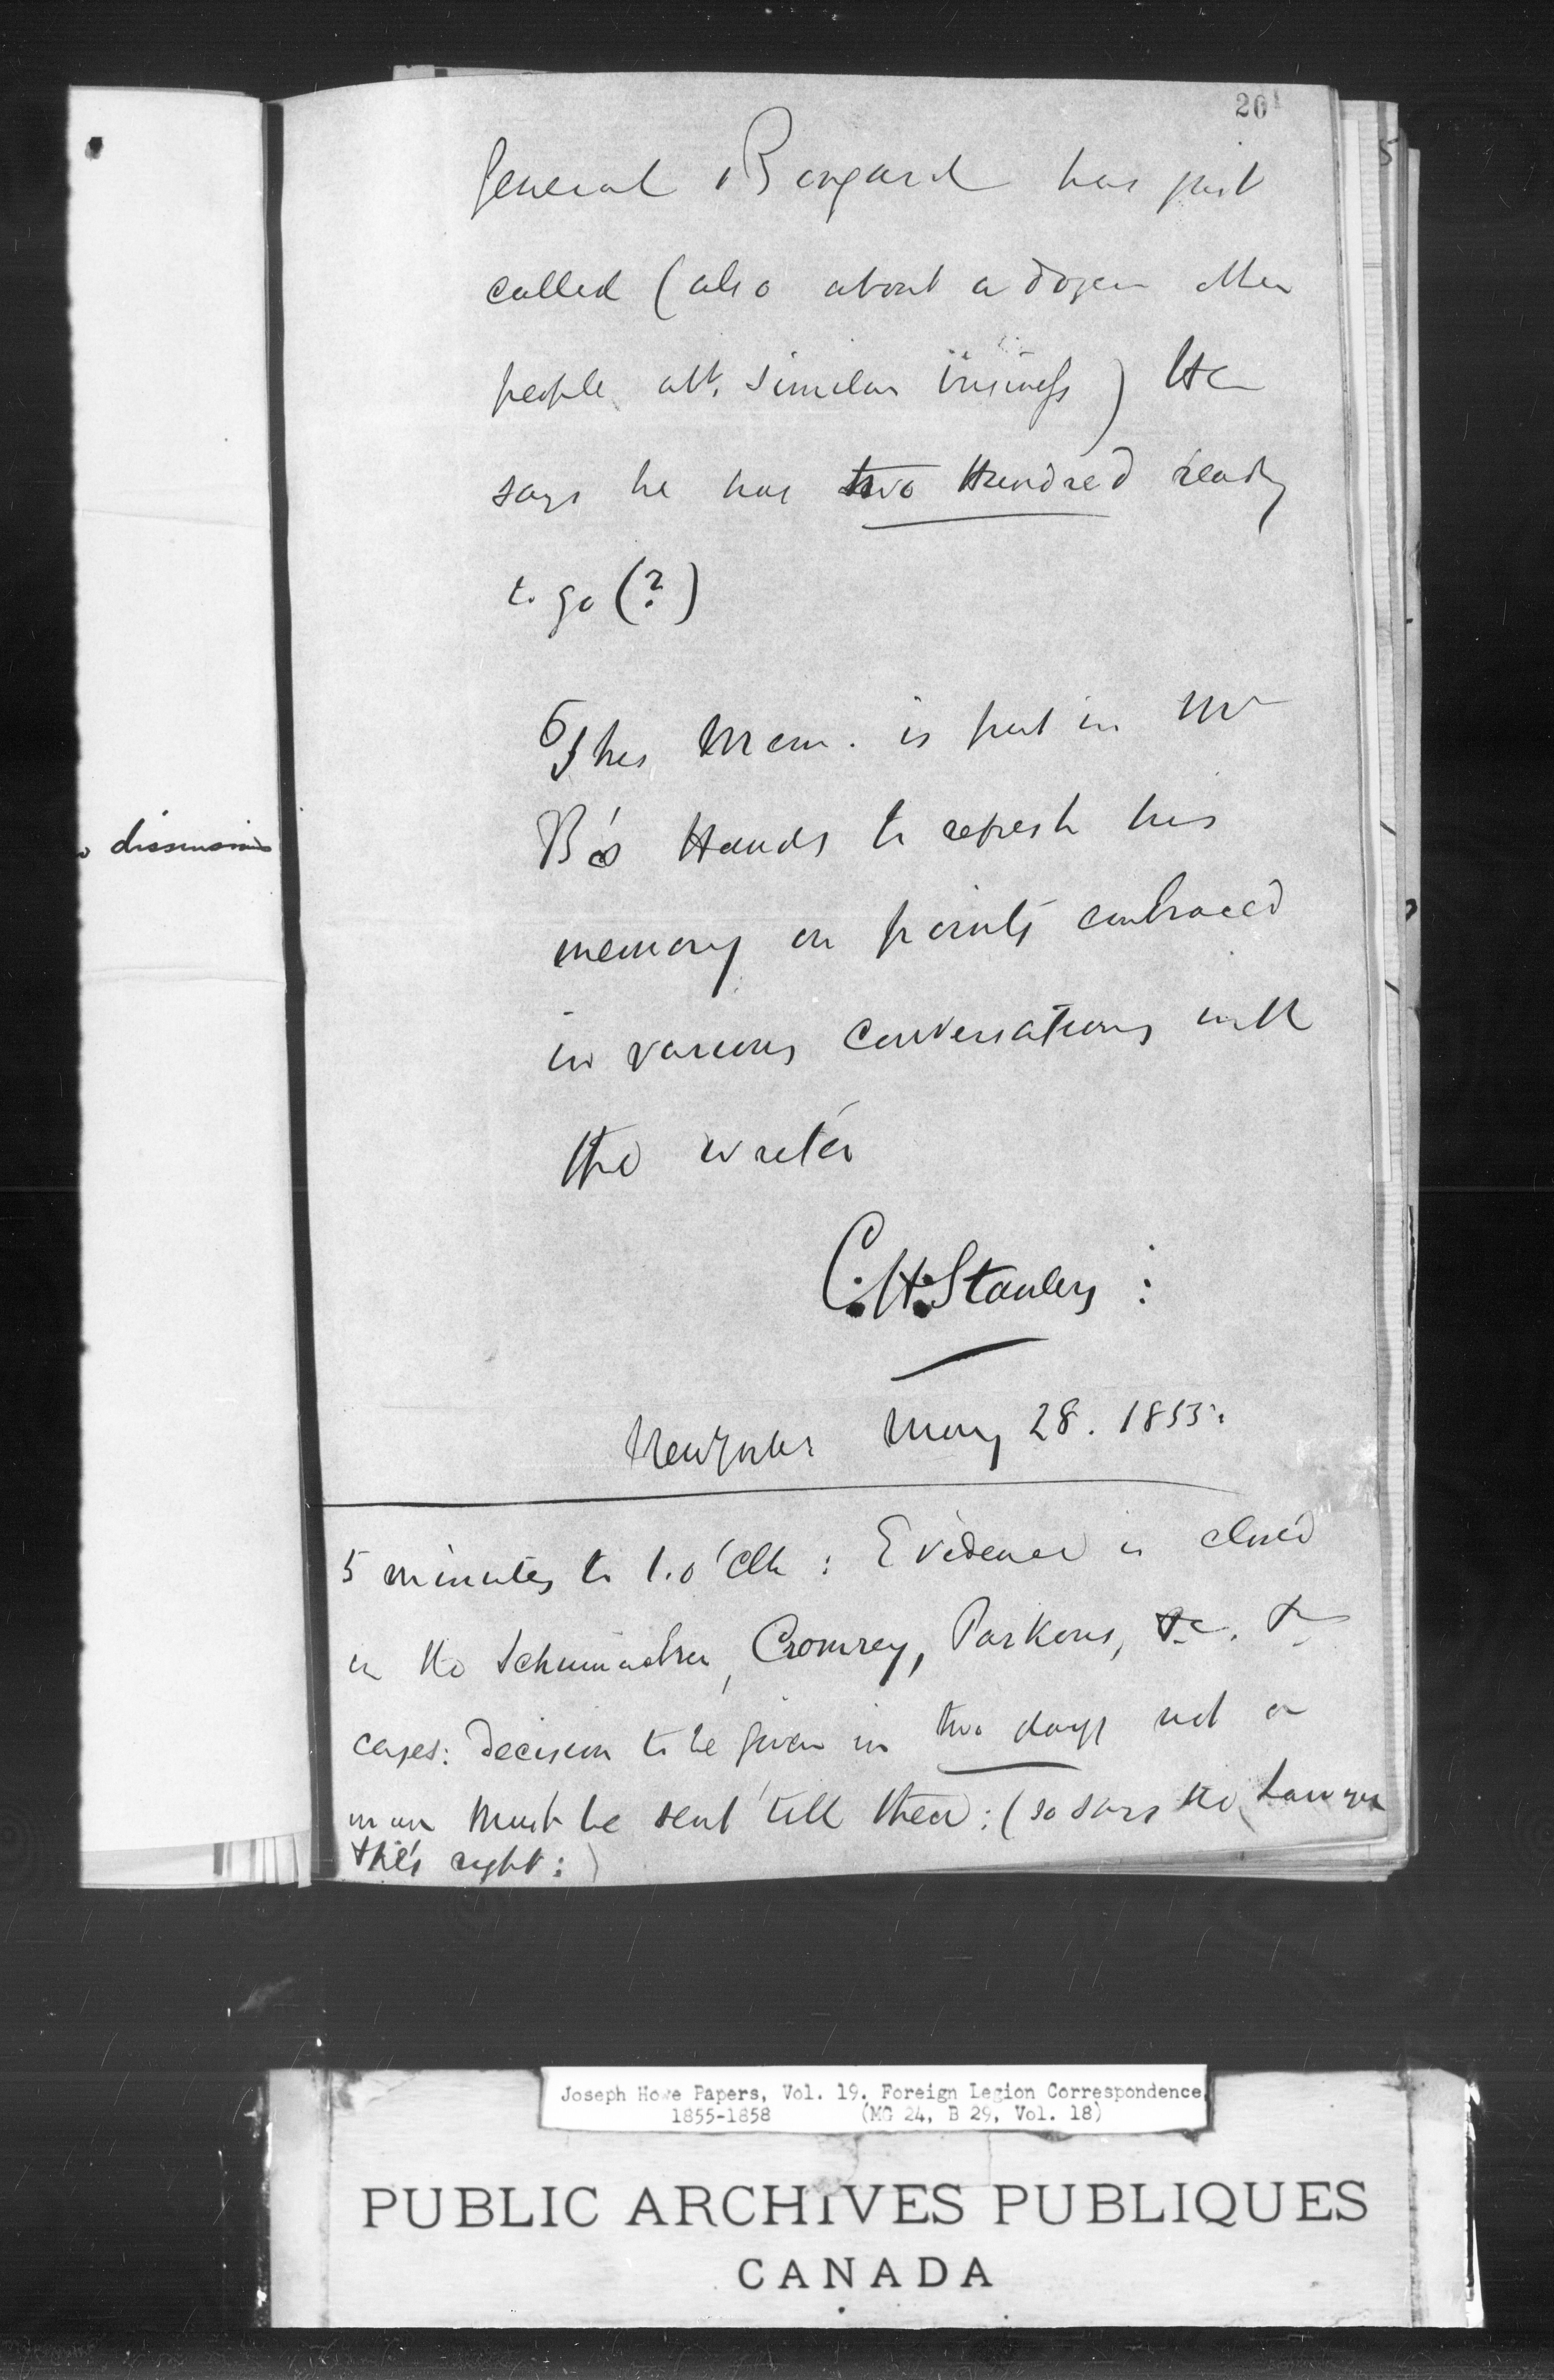 201
General Bangard has just
called (also about a dozen other
people abt. similar business) He
says he has two Hundred ready
to go (?)
This Mem. is put in Mr
B's Hands to refresh his
memory on points embraced
in various conversations with
the writer
C.H. Stanley :
New York May 28. 1855.
5 minutes to 1. o'Clk : Evidence is closed
in the Schumacher, Cromrey, Parkens, &c. &c
cases: Decision to be given in two days not a
man must be sent till then : (so says the Lawyer
& he's right : )
discussion
Joseph Howe Papers, Vol. 19. Foreign Legion Correspondence,
1855-1858 (MG 24, B 29, Vol. 18)
PUBLIC ARCHIVES PUBLIQUES
CANADA